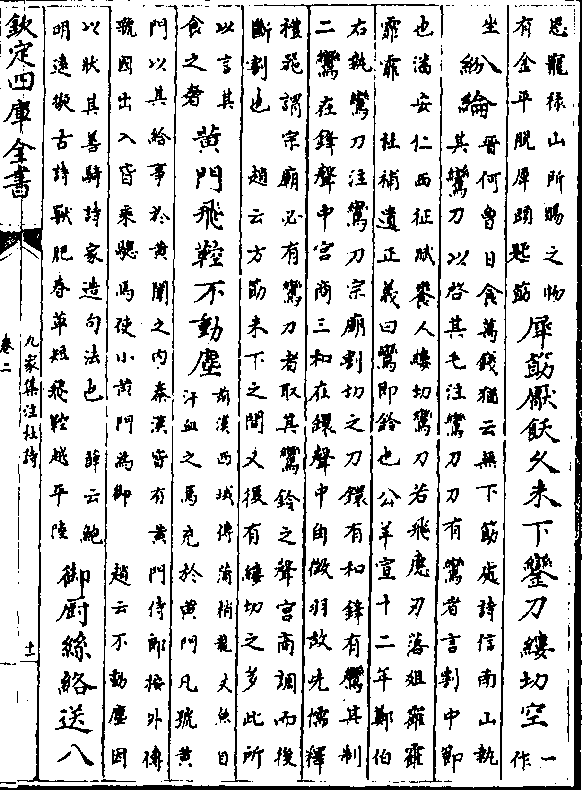 恩寵祿山所賜之物
有金平脫犀頭匙筯
犀筯厭飫久未下鑾刀縷切空
一
作
坐
紛綸
晉何曾日食萬錢猶云無下筯處詩信南山執
其鸞刀以啓其毛注鸞刀刀有鸞者言割中節
也潘安仁西征賦饔人縷切鸞刀若飛應刃落俎霍霍
霏霏 杜補遺正義曰鸞即鈴也公羊宣十二年鄭伯
右執鸞刀注鸞刀宗廟割切之刀鐶有和鋒有鸞其制
二鸞在鋒聲中宮商三和在鐶聲中角徵羽故先儒釋
禮苑謂宗廟必有鸞刀者取其鸞鈴之聲宮商調而後
斷割也 趙云方筯未下之間又復有縷切之多此所
以言其
食之奢
黄門飛鞚不動塵
前漢西域傳蒲梢龍文魚目
汗血之馬充於黄門凡號黄
門以其給事於黄闥之内秦漢皆有黄門侍郎掖外傳
號因出入皆乘驄馬使小黄門為御 趙云不動塵因
以狀其善騎詩家造句法也 薛云鮑
明遠擬古詩獸肥春草短飛鞚越平陸
御厨絲絡送八
欽定四庫全書
九家集注杜詩
卷二
十一